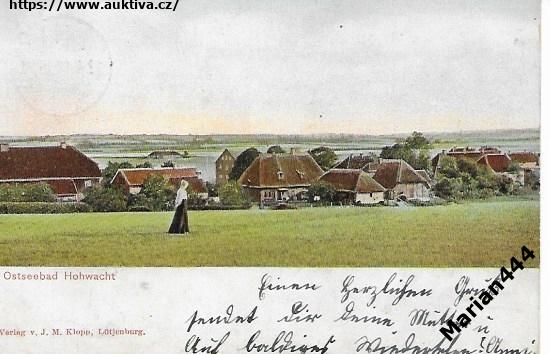 https://www.auktiva.cz/
Ostseebad Hohwacht
Verlag v. J. M. Klopp, Lütjenburg.
Einen herzlichen Gruß
sendet Dir deine
Auf baldiges Wiedersehn!
Marian444